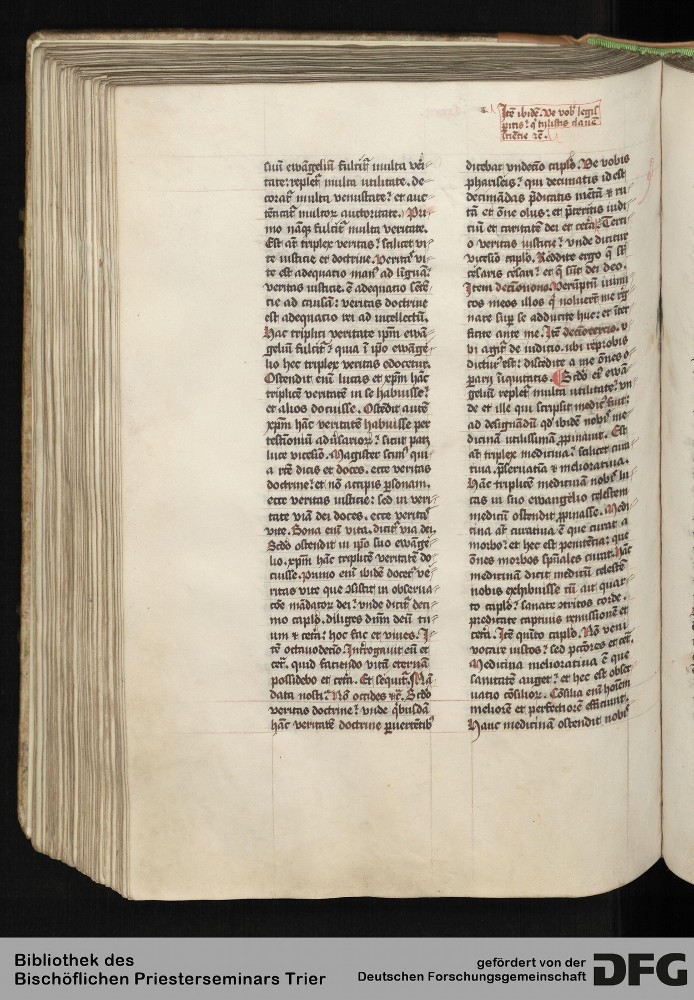 Itē ibidē. Ve vob̄ legis
peritis? q̄ tulistis clauē
sciētie ⁊ē.
suū ewāgeliū fulcit᷑ multa veri-
tate: replet᷑ multa utilitate. de-
corat᷑ multa venustate? et auc-
tēticat᷑ multor̄ auctoritate. Pri-
mo nāq̄ fulcit᷑ multa veritate.
Est at̄ triplex veritas? scilicet vi-
te iusticie et doctrine. Veritas vi-
te est adequatio man⁹ ad liguā?
veritas iusticie. ē adequatio sētē-
tie ad causā: veritas doctrine
est adequatio rei ad intellectū.
Hac triplici veritate ip̄m ewā-
geliū fulcit᷑? quia ī ip̄o ewāge-
lio hec triplex veritas edocetur.
Ostendit eīu lucas et xp̄m hāc
triplicē veritatē in se habuisse?
et alios docuisse. Ostēdit autē
xp̄m hāc veritatē habuisse per
testimoniū adūsarior̄? sicut patʒ
luce vicesīo. Magister scim⁹ qui-
a rc̄e dicis et doces. ecce veritas
doctrine? et nō accipis ꝑsonam.
ecce veritas iusticie: sed in veri-
tate viā dei doces. ecce veritas
vite. Bona eīu vita. dicit᷑ via dei.
Scd̄o ostendit in ip̄o suo ewāge-
lio. xp̄m hāc triplicē veritatē do-
cuisse. Primo eīu ibidē docet᷑ ve-
ritas vite que ꝯsistit in obserua-
cōe mādator̄ dei? vnde dicit᷑ deci-
mo capl̄o. diliges dn̄m deū tu-
um ⁊ cetā? hoc fac et viues. I-
tē octauodecīo. Int᷑rogauit eū et
cet̄. quid faciendo vitā eternā
possidebo et cetā. Et sequit᷑. Mā-
data nosti? Nō occides ⁊ē. Scd̄o
veritas doctrine? vnde q̄busdā
hāc veritatē doctrine ꝑuertētib⁹
dicebat vndecīo capl̄o. Ve vobis
phariseis? qui decimatis id est
decimādas p̄dicatis mētā ⁊ ru-
tā et ōne olus: et p̄teritis iudi-
ciū et caritatē dei et cetā. Terci-
o veritas iusticie? vnde dicitur
vicesīo capl̄o. Reddite ergo q̄ sūt
cesaris cesari? et q̄ sūt dei deo.
Item decīonono. Verūptn̄ inimi-
cos meos illos q̄ noluerūt me rēg-
nare suꝑ se adducite huc: et īter-
ficite ante me. Itē deciotercio. v-
bi agit᷑ de iudicio. ubi reprobis
dictur⁹ est: discedite a me ōnes o-
ꝑarij īiquitatis. Scd̄o et⁹ ewā-
geliū replet᷑ multa utilitate? vn-
de et ille qui scripsit medic⁹ fuit:
ad designādū qd̄ ibidē nobis me-
dicinā utilissimā ꝓpinauit. Est
at̄ triplex medicina? scilicet cura-
tiua. p̄seruatīa ⁊ melioratiua.
Hāc triplicē medicinā nobis lu-
cas in suo ewangelio celestem
medicū ostendit ꝓpinasse. Medi-
cina at̄ curatiua ē que curat a
morbo? et hec est penitētia: que
ōnes morbos spūales curat. Hāc
medicinam dicit medicū celestē
nobis exhibuisse cū ait quar-
to capl̄o? sanare ꝯtritos corde.
predicare captiuis remissionē et
cetā. Itē quīto capl̄o. Nō veni
vocare iustos? sed pctōres et cet̄.
Medicina melioratiua ē que
sanitatē auget? et hec est obser-
uatio cōsilior̄. Cōsilia eīu hoīem
meliorē et perfectiorē efficiunt.
Hanc medicinam ostendit nobis
Bibliothek des
Bischöflichen Priesterseminars Trier
gefördert von der
Deutschen Forschungsgemeinschaft
DFG